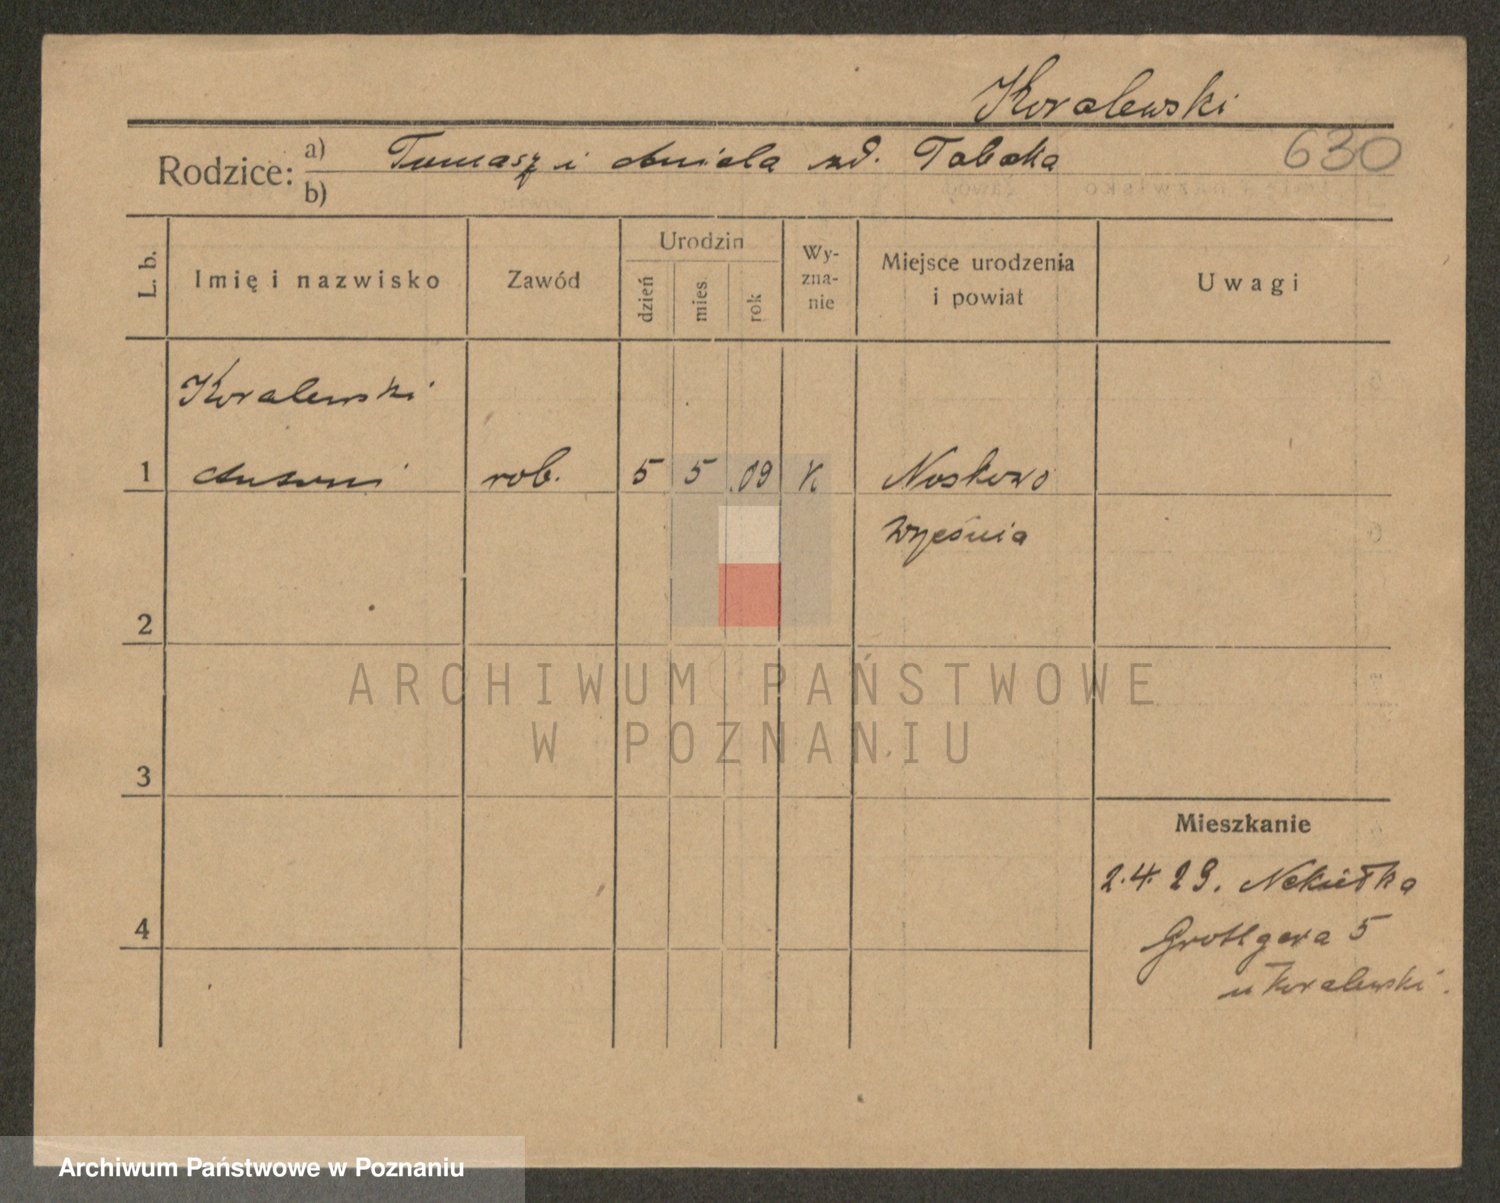 Koralewski
630
Rodzice: a) Tomasz i Aniela zd. Tabaka
b)
L. b.
Imię i nazwisko
Zawód
Urodzin
dzień
mies.
rok
Wy-
zna-
nie
Miejsce urodzenia
i powiat
Uwagi
Koralewski
1 Antoni rob. 5 5 09 K Noskowo
Września
2
3
4
Mieszkanie
2.4.29. Nekielka
Grottgera 5
u Koralewski.
ARCHIWUM PAŃSTWOWE
W POZNANIU
Archiwum Państwowe w Poznaniu